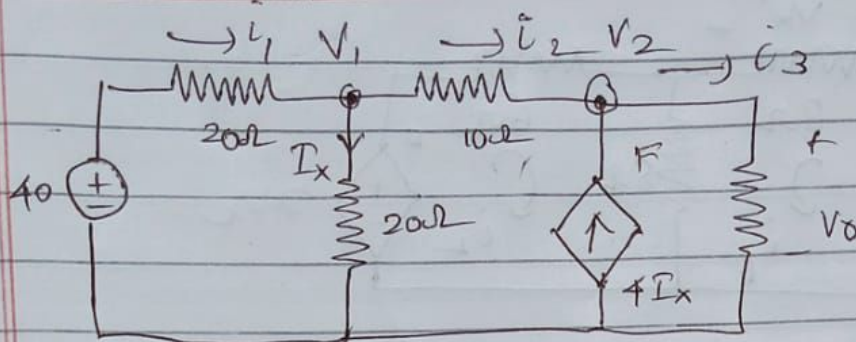 i₁ V₁ i₂ V₂ i₃
20Ω 10Ω
Iₓ F +
40 + - 20Ω V₀
4Iₓ